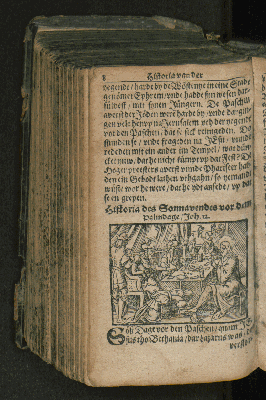 8 Historia van der
gegende / harde by de Wöstenye in eine Stadt
genömet Ephrem / vnde hadde sin wesen dar-
süluest / mit synen Jüngern. De Paschen
auerst der Jöden were harde by / vnde dar gin-
gen vele henvp na Jerusalem vth der gegende
vor den Paschen / dat se sick reinigeden. Do
stunden se / vnde frageden na JEsu / vnnde
rededen mit ein ander im Tempel /
dat he nicht kümpt vp dat Fest? De
Hogenpreesters auerst vnnde Phariseer had-
den ein Gebodt laten vthgahn / so yemandt
wüste wor he were / dat he ydt ansede / vp dat
se en grepen.
Historia des Sonnauendes vor dem
Palmdage, Joh. 12.
Söß Dage vor den Paschen / quam JE-
sus tho Bethania / dar Lazarus was /